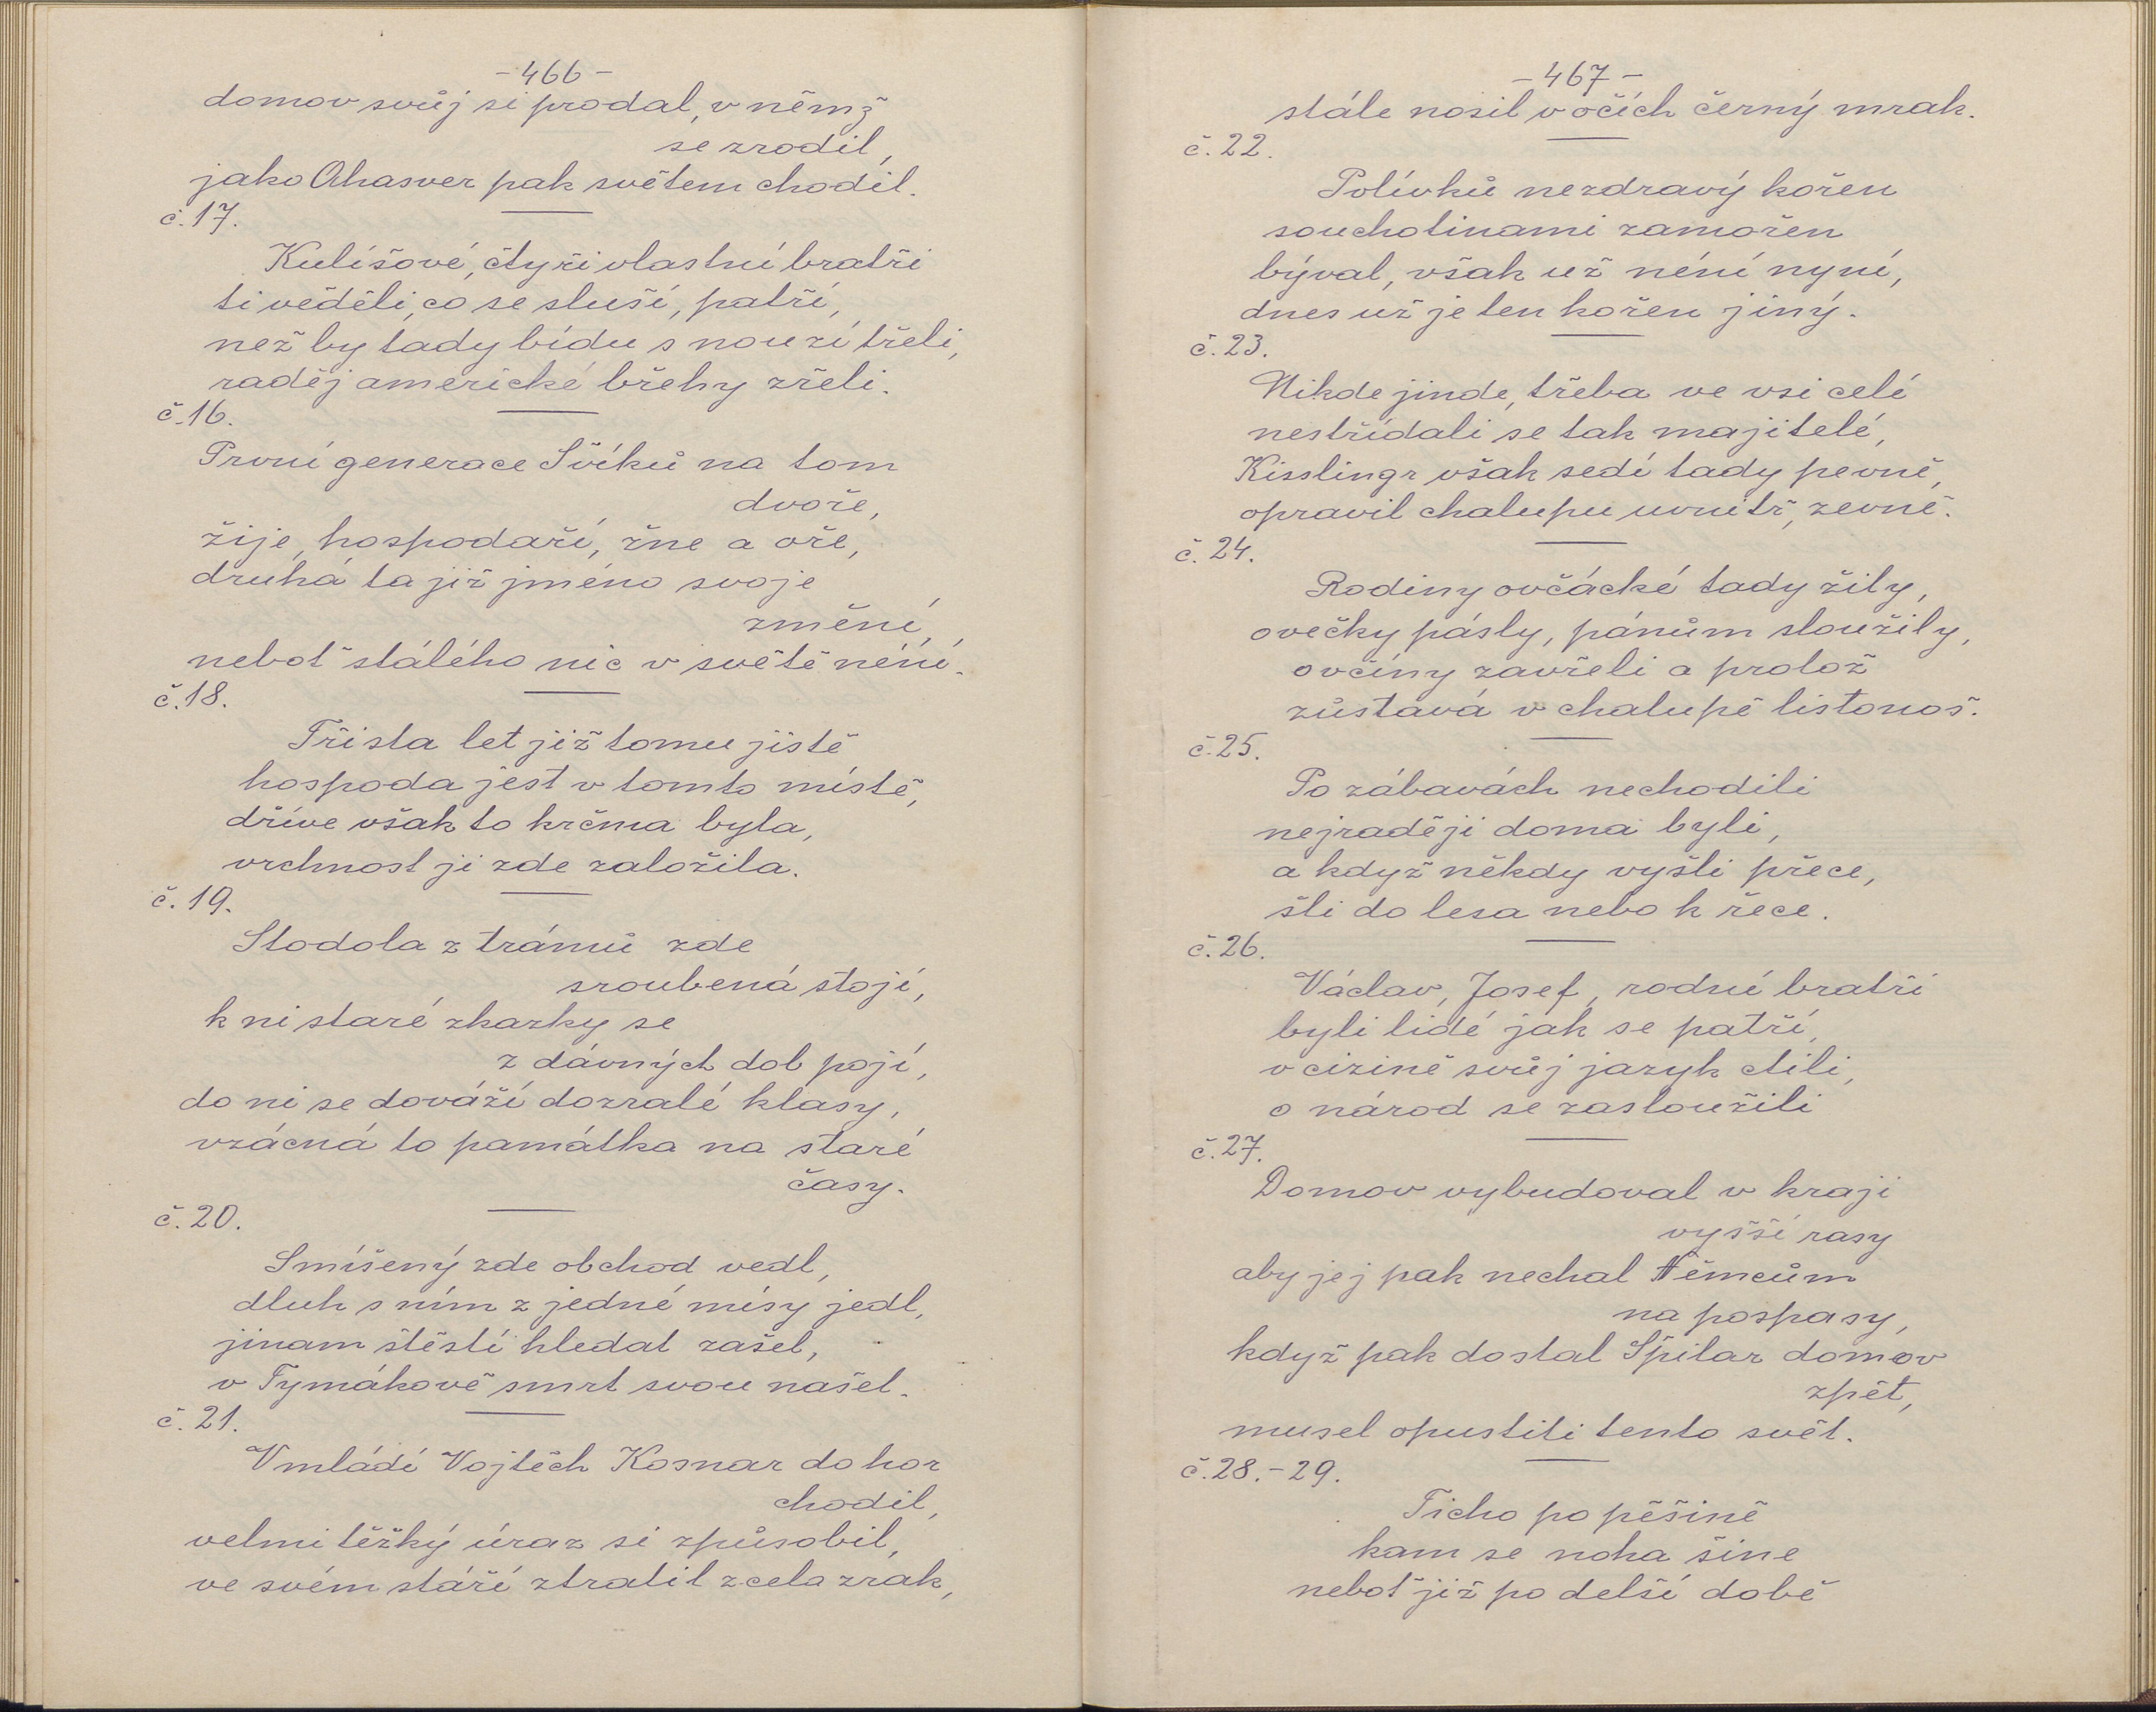 -466-
domov svůj si prodal, v němž
se zrodil,
jako Ahasver pak světem chodil.
č.17.
Kulíšové, čtyři vlastní bratři
ti věděli, co se sluší, patří,
než by tady bídu s nouzí třeli,
raděj americké břehy zřeli.
č.16.
První generace Švíků na tom
dvoře,
žije, hospodaří, žne a oře,
druhá ta již jméno svoje
změní,
neboť stálého nic v světě néní.
č.18.
Třista let již tomu jistě
hospoda jest v tomto místě,
dříve však to krčma byla,
vrchnost ji zde založila.
č.19.
Stodola z trámů zde
sroubená stojí,
k ni staré zkazky se
z dávných dob pojí,
do ni se dováží dozralé klasy,
vzácná to památka na staré
časy.
č.20.
Smíšený zde obchod vedl,
dluh s ním z jedné mísy jedl,
jinam štěstí hledat zašel,
v Tymákově smrt svou našel.
č.21.
V mládí Vojtěch Kosnar do hor
chodil,
velmi těžký úraz si způsobil,
ve svém stáří ztratil zcela zrak,
-467-
stále nosil v očích černý mrak.
č.22.
Polívků nezdravý kořen
souchotinami zamořen
býval, však už néní nyní,
dnes už je ten kořen jiný.
č.23.
Nikde jinde, třeba ve vsi celé
nestřídali se tak majitelé,
Kisslingr však sedí tady pevně,
opravil chalupu uvnitř, zevně.
č.24.
Rodiny ovčácké tady žily,
ovečky pásly, pánům sloužily,
ovčíny zavřeli a protož
zůstává v chalupě listonoš.
č.25.
Po zábavách nechodili
nejraději doma byli,
a když někdy vyšli přece,
šli do lesa nebo k řece.
č.26.
Václav, Josef, rodní bratři
byli lidé jak se patří,
v cizině svůj jazyk ctili,
o národ se zasloužili
č.27.
Domov vybudoval v kraji
vyšší rasy
aby jej pak nechal Němcům
na pospasy,
když pak dostal Špilar domov
zpět,
musel opustiti tento svět.
č.28.-29.
Ticho po pěšině
kam se noha šine
neboť již po delší době